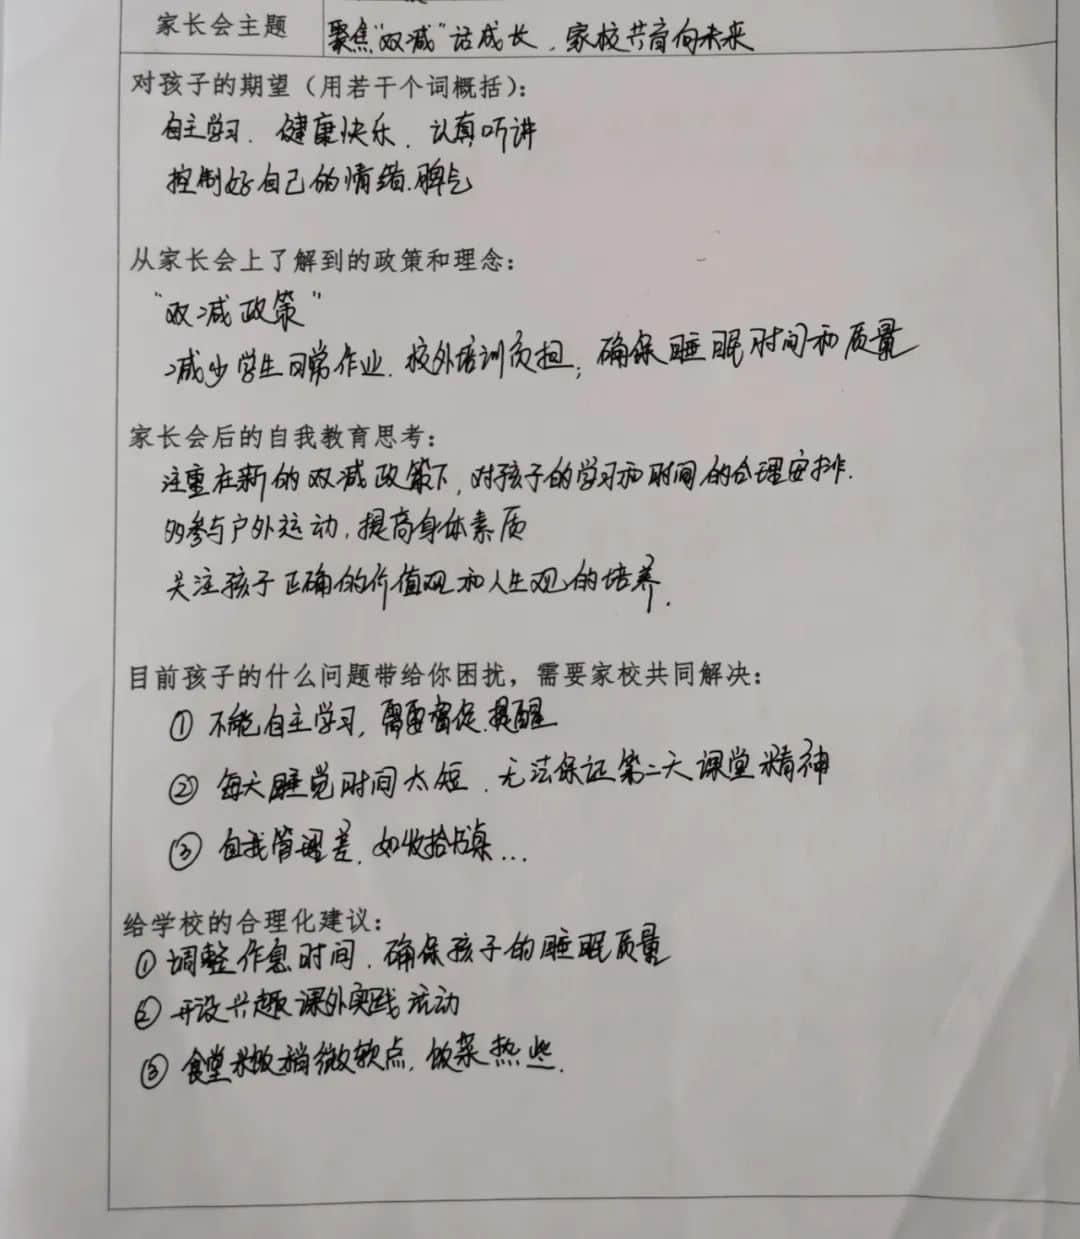 家长会主题
聚焦“双减”话成长，家校共育向未来
对孩子的期望（用若干个词概括）：
自主学习、健康快乐、认真听讲
控制好自己的情绪.脾气
从家长会上了解到的政策和理念：
“双减政策”
减少学生日常作业.校外培训负担；确保睡眠时间和质量
家长会后的自我教育思考：
注重在新的双减政策下，对孩子的学习和时间的合理安排.
多参与户外运动，提高身体素质
关注孩子正确的价值观和人生观的培养.
目前孩子的什么问题带给你困扰，需要家校共同解决：
① 不能自主学习，需要督促.提醒
② 每天睡觉时间太短.无法保证第二天课堂精神
③ 自我管理差.如收拾书桌...
给学校的合理化建议：
① 调整作息时间.确保孩子的睡眠质量
② 开设兴趣课外实践活动
③ 食堂米饭稍微软点.饭菜热些.